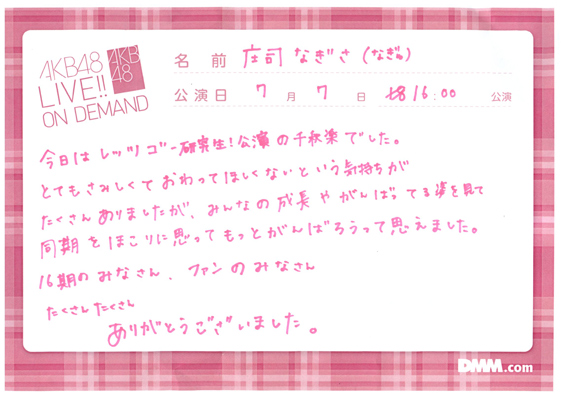 AKB48
LIVE!!
ON DEMAND
AKB
48
名 前 庄司 なぎさ (なぎゅ)
公演日 7 月 7 日 16:00 公演
今日は レッツゴー研究生!公演の千秋楽でした。
とてもさみしくておわってほしくないという気持ちが
たくさんありましたが、みんなの成長やがんばってる姿を見て
同期をほこりに思ってもっとがんばろうって思えました。
16期のみなさん、ファンのみなさん
たくさんたくさん
ありがとうございました。
DMM.com